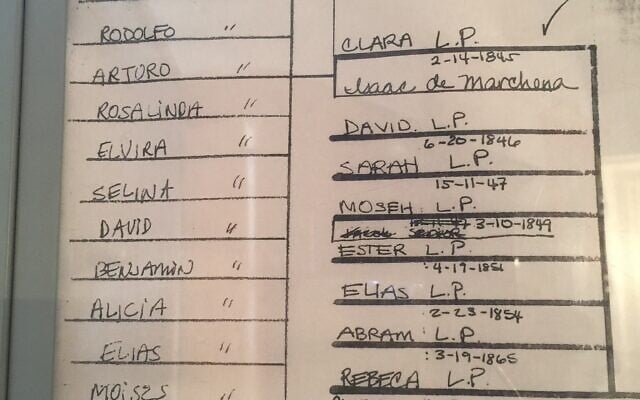 RODOLFO "
ARTURO "
ROSALINDA "
ELVIRA "
SELINA "
DAVID "
BENJAMIN "
ALICIA "
ELIAS "
MOISES "
CLARA L.P.
2-14-1845
Isaac de Marchena
DAVID. L.P.
6-20-1846
SARAH L.P.
15-11-47
MOSEH L.P.
3-10-1849
ESTER L.P.
4-19-1851
ELIAS L.P.
2-23-1854
ABRAM L.P.
3-19-1865
REBECA L.P.